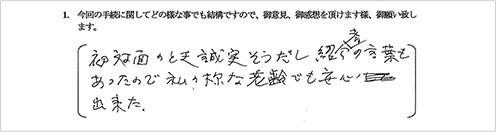 1. 今回の手続に関してどの様な事でも結構ですので、御意見、御感想を頂けます様、御願い致し
ます。
初対面のとき誠実そうだし紹介者の言葉も
あったので私の様な老齢でも安心
出来た.